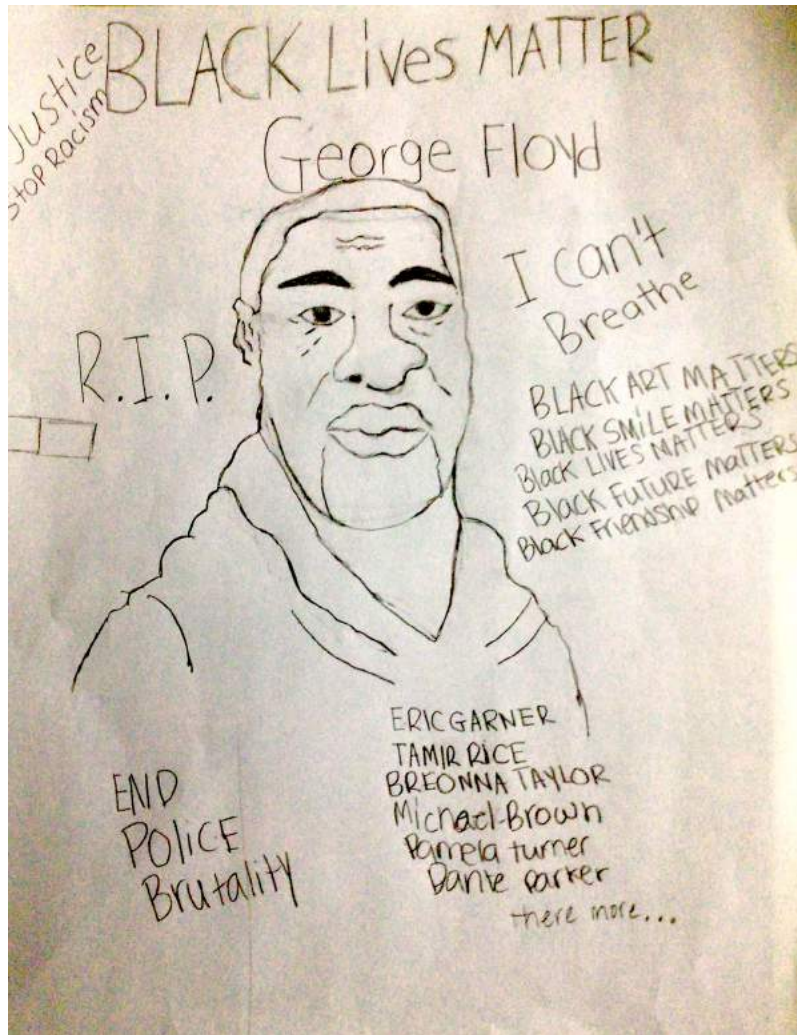 Justice
Stop Racism
BLACK Lives MATTER
George Floyd
I can't
Breathe
R.I.P.
BLACK ART MATTERS
BLACK SMILE MATTERS
Black LIVES MATTERS
Black FUTURE MATTERS
Black Friendship Matters
ERIC GARNER
TAMIR RICE
BREONNA TAYLOR
Michael Brown
Pamela turner
Dante parker
there more...
END
POLICE
Brutality